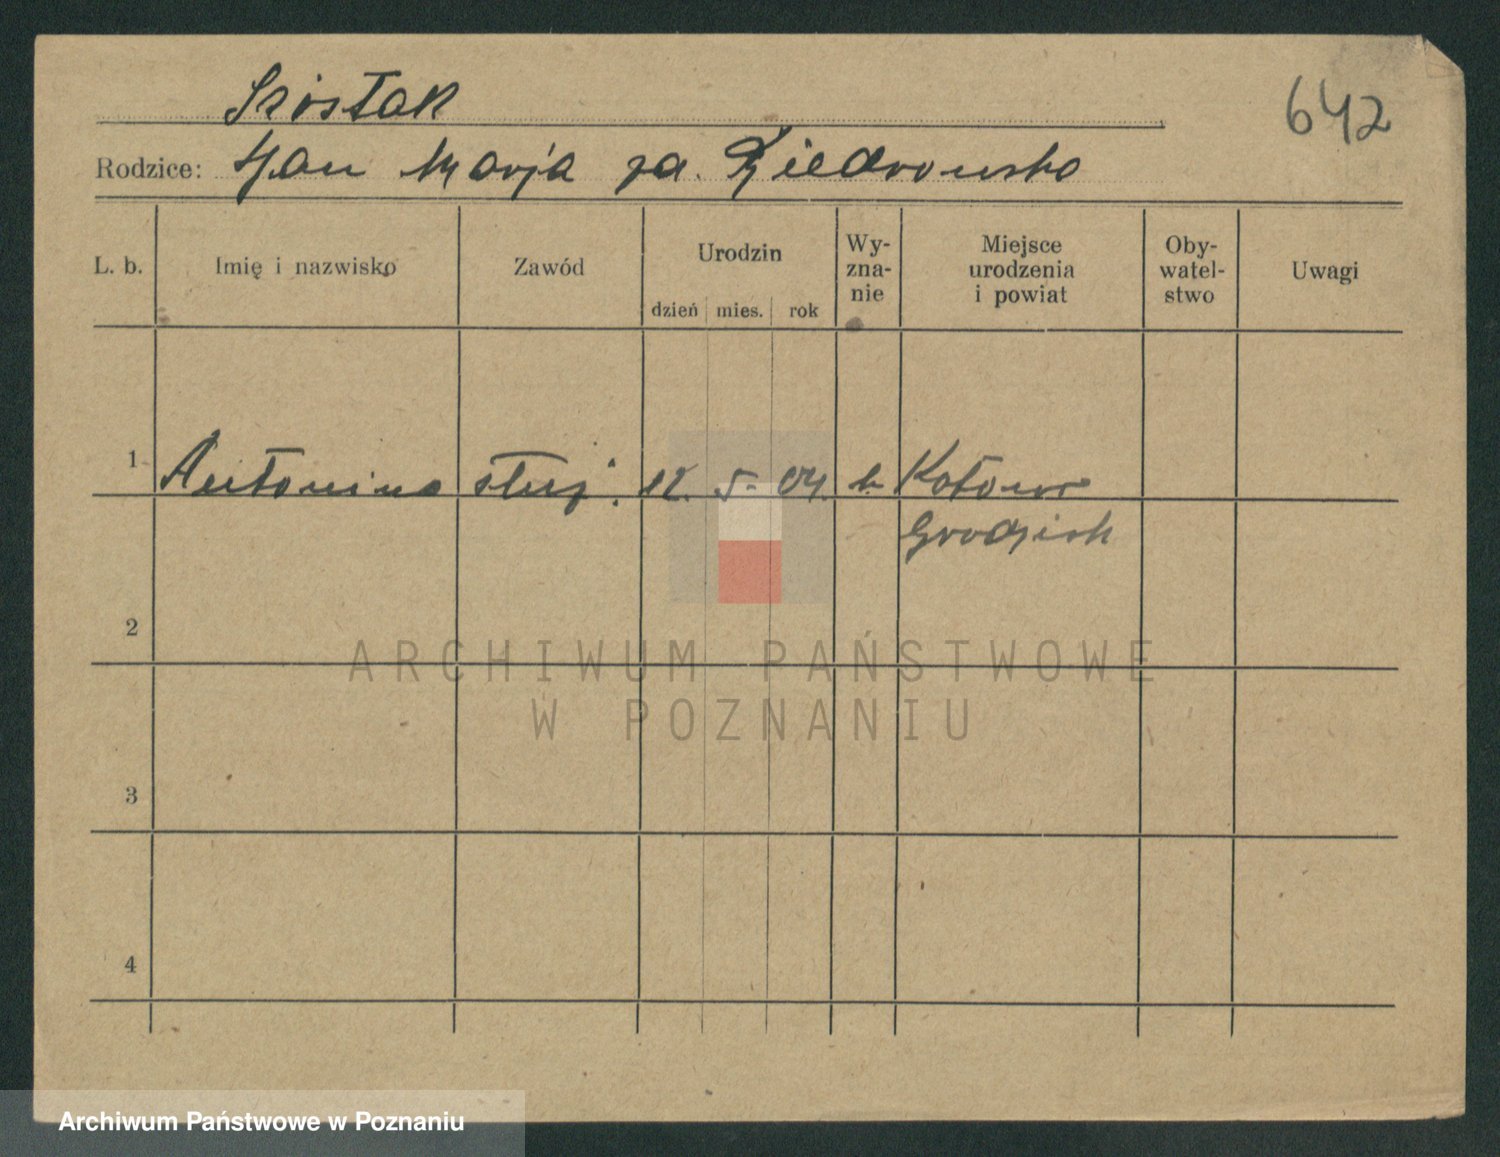 Szóstak
642
Rodzice: Jan Marja za. Kiedrowska
L. b. Imię i nazwisko Zawód Urodzin dzień mies. rok Wy-zna-nie Miejsce urodzenia i powiat Oby-watel-stwo Uwagi
1 Antonina służ. 12. 5. 04. k Kotowo
Grodzisk
2
3
4
ARCHIWUM PAŃSTWOWE
W POZNANIU
Archiwum Państwowe w Poznaniu